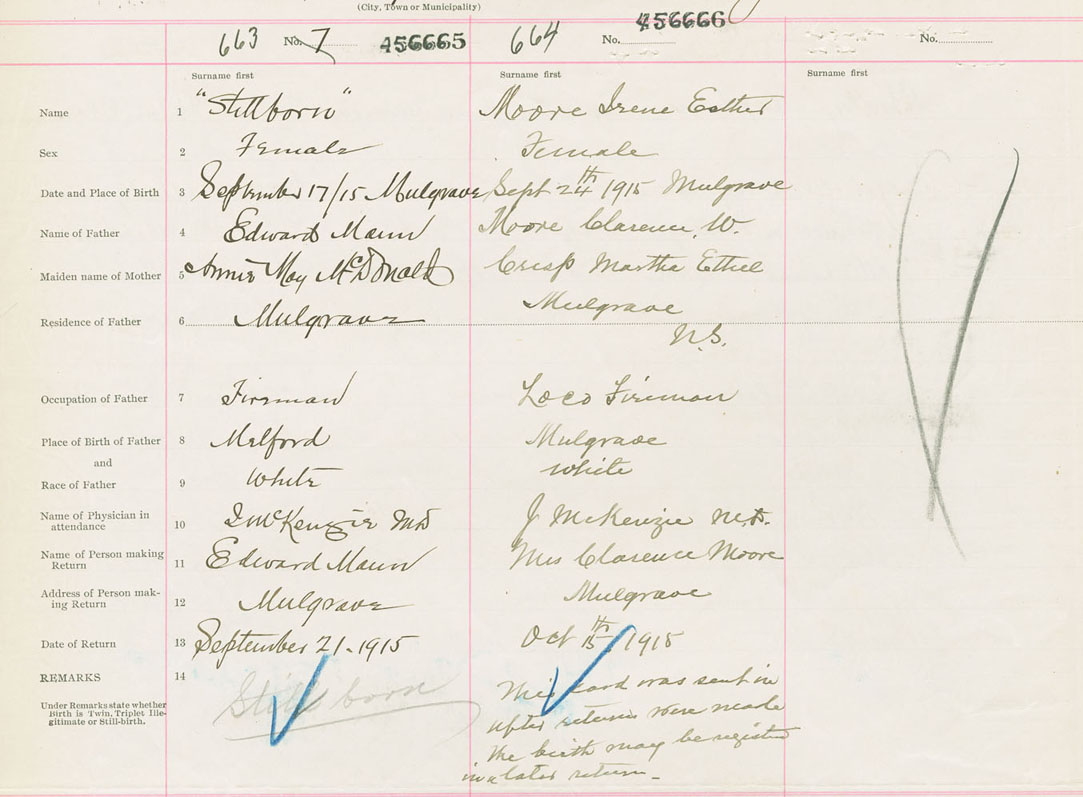 (City, Town or Municipality)
663 No. 7 456665 664 No. 456666 No.
Surname first Surname first Surname first
Name 1 "Stillborn" Moore Irene Esther
Sex 2 Female Female
Date and Place of Birth 3 September 17/15 Mulgrave Sept 24th 1915 Mulgrave
Name of Father 4 Edward Mann Moore Clarence, W.
Maiden name of Mother 5 Annie May McDonald Crisp Martha Ethel
Residence of Father 6 Mulgrave Mulgrave
N.S.
Occupation of Father 7 Fireman Loco Fireman
Place of Birth of Father 8 Melford Mulgrave
and
Race of Father 9 White White
Name of Physician in
attendance 10 McKenzie MD J McKenzie M.D.
Name of Person making
Return 11 Edward Mann Mrs Clarence Moore
Address of Person mak-
ing Return 12 Mulgrave Mulgrave
Date of Return 13 September 21-1915 Oct 15th 1915
REMARKS 14 Still born This card was sent in
Under Remarks state whether
Birth is Twin, Triplet Ille-
gitimate or Still-birth.
after returns were made
the birth may be registered
in a later return-